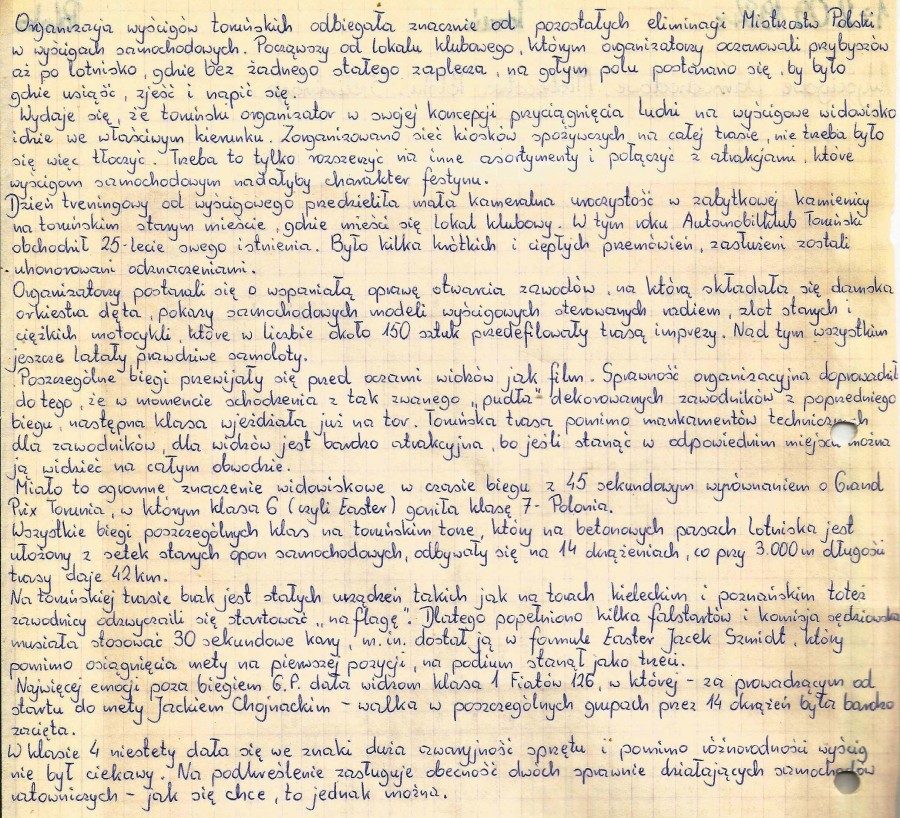 Organizacja wyścigów toruńskich odbiegała znacznie od pozostałych eliminacji Mistrzostw Polski
w wyścigach samochodowych. Począwszy od lokalu klubowego, którym organizatorzy oczarowali przybyszów
aż po lotnisko, gdzie bez żadnego stałego zaplecza, na gołym polu postarano się, by było
gdzie usiąść, zjeść i napić się.
Wydaje się, że toruński organizator w swojej koncepcji przyciągnięcia ludzi na wyścigowe widowisko
idzie we właściwym kierunku. Zorganizowano sieć kiosków spożywczych na całej trasie, nie trzeba było
się więc tłoczyć. Trzeba to tylko rozszerzyć na inne asortymenty i połączyć z atrakcjami, które
wyścigom samochodowym nadałyby charakter festynu.
Dzień treningowy od wyścigowego przedzieliła mała kameralna uroczystość w zabytkowej kamienicy
na toruńskim starym mieście, gdzie mieści się lokal klubowy. W tym roku Automobilklub Toruński
obchodził 25-lecie swego istnienia. Było kilka krótkich i ciepłych przemówień, zasłużeni zostali
uhonorowani odznaczeniami.
Organizatorzy postarali się o wspaniałą oprawę otwarcia zawodów, na którą składała się damska
orkiestra dęta, pokazy samochodowych modeli wyścigowych sterowanych radiem, zlot starych i
ciężkich motocykli, które w liczbie około 150 sztuk przedefilowały trasą imprezy. Nad tym wszystkim
jeszcze latały prawdziwe samoloty.
Poszczególne biegi przewijały się przed oczami widzów jak film. Sprawność organizacyjna doprowadził
do tego, że w momencie schodzenia z tak zwanego "pudła" dekorowanych zawodników z poprzedniego
biegu, następna klasa wjeżdżała już na tor. Toruńska trasa pomimo mankamentów technicznych
dla zawodników, dla widzów jest bardzo atrakcyjna, bo jeśli stanąć w odpowiednim miejscu można
ją widzieć na całym obwodzie.
Miało to ogromne znaczenie widowiskowe w czasie biegu z 45 sekundowym wyrównaniem o Grand
Prix Torunia, w którym klasa 6 (czyli Easter) goniła klasę 7- Polonia.
Wszystkie biegi poszczególnych klas na toruńskim torze, który na betonowych pasach lotniska jest
ułożony z setek starych opon samochodowych, odbywały się na 14 okrążeniach, co przy 3.000 m długości
trasy daje 42 km.
Na toruńskiej trasie brak jest stałych urządzeń takich jak na torach kieleckim i poznańskim toteż
zawodnicy odzwyczaili się startować "na flagę". Dlatego popełniono kilka falstartów i komisja sędziowska
musiała stosować 30 sekundowe kary, m.in. dostał ją w formule Easter Jacek Szmidt, który
pomimo osiągnięcia mety na pierwszej pozycji, na podium stanął jako trzeci.
Najwięcej emocji poza biegiem G.P. dała widzom klasa 1 Fiatów 126, w której - za prowadzącym od
startu do mety Jackiem Chojnackim - walka w poszczególnych grupach przez 14 okrążeń była bardzo
zacięta.
W klasie 4 niestety dała się we znaki duża awaryjność sprzętu i pomimo różnorodności wyścig
nie był ciekawy. Na podkreślenie zasługuje obecność dwóch sprawnie działających samochodów
ratowniczych - jak się chce, to jednak można.